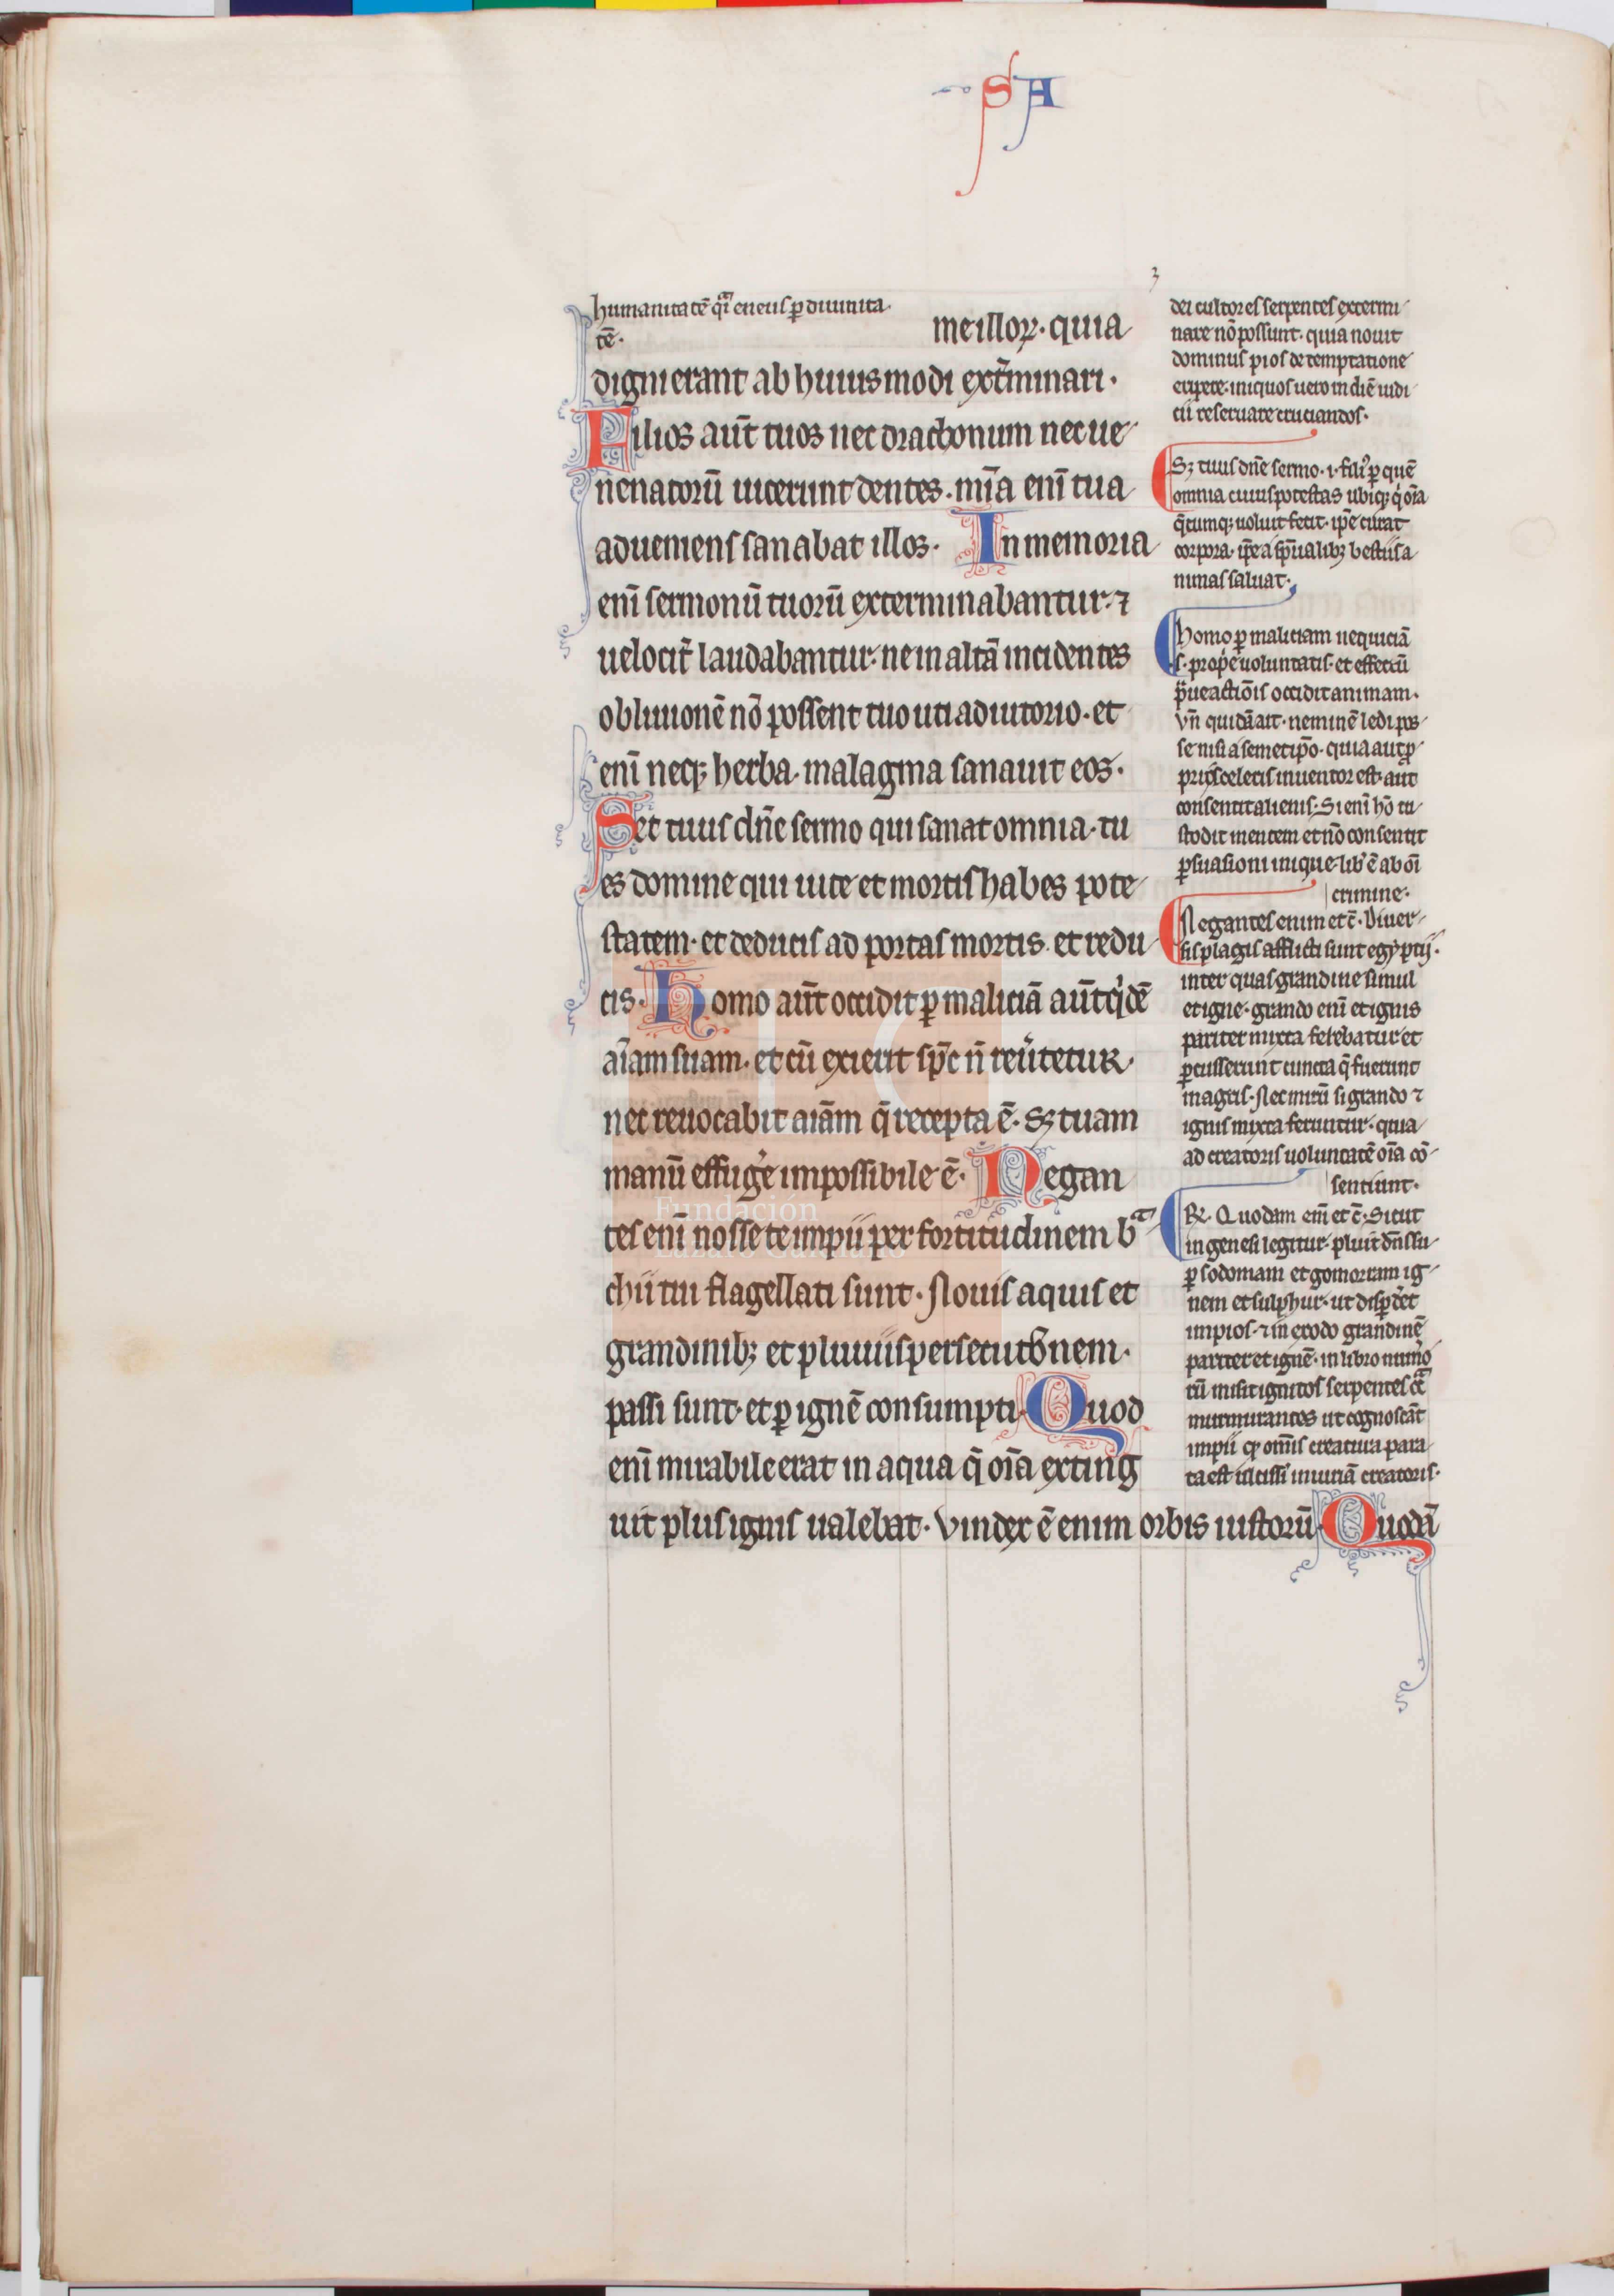 SA
humanitatē q̄i eneus ꝑ diuinita
tē.
me illoꝝ. quia
digni erant ab huiusmodi ext̄minari.
Filios aūt tuos nec drachonum nec ue
nenatorū uicerunt dentes. mīa enī tua
adueniens sanabat illos. In memoria
enī sermonū tuorū exterminabantur. ⁊
uelocit̄ laudabantur. ne in altā incidentes
obliuionē nō possent tuo uti adiutorio. et
enī neqꝫ herba. malagma sanauit eos.
Set tuus dn̄e sermo qui sanat omnia. tu
es domine qui uite et mortis habes pote
statem. et deducis ad portas mortis. et redu
cis. Homo aūt occidit ꝑ maliciā aūt q'dē
aīam suam. et cū exierit sp̄c n̄ reu̓tetur.
nec reuocabit aīam q̄ recepta ē. Sꝫ tuam
manū effug̓e impossibile ē. Negan
tes enī nosse te impii per fortitudinem bͣ
chii tui flagellati sunt. Nouis aquis et
grandinibꝫ et pluuiis persecutōnem.
passi sunt. et ꝑ ignē consumpti. Quod
enī mirabile erat in aqua q̄ oīa exting
uit plus ignis ualebat. Vindex ē enim orbis iustorū. Quodā
dei cultores serpentes extermi
nare nō possunt. quia nouit
dominus pios de temptatione
eripere. iniquos uero in diē iudi
cii reseruare cruciandos.
Sꝫ tuus dn̄e sermo. i. fili' ꝑ quē
omnia cuius potestas ubiqꝫ q' oīa
q̄cumqꝫ uoluit fecit. ip̄e curat
corpora. ip̄e a sp̄ualibꝫ bestiis a
nimas saluat.
Homo ꝑ maliciam nequiciā
s. prop̓e uoluntatis. et effectū
p̄ue actiōis occidit animam.
Vn̄ quidā ait. neminē ledi pos
se nisi a semetip̄o. quia aut ꝓ
prii sceleris inuentor est. aut
consentit alienis. Si enī hō cu
stodit mentem et nō consentit
ꝑsuasioni inique. lib' ē ab oī
crimine.
Negantes enim et c̄. Diuer
sis plagis afflicti sunt egyptii.
inter quas grandine simul
et igne. grando enī et ignis
pariter mixta ferebatur et
ꝑcusserunt cuncta q̄ fuerunt
in agris. Nec mirū si grando ⁊
ignis mixta feruntur. quia
ad creatoris uoluntatē oīa cō
sentiunt.
R. Quodam enī et c̄. Sicut
in genesi legitur. pluit dn̄s su
ꝑ sodomam et gomorram ig
nem et sulphur. ut disꝑd̓et
impios. ⁊ in exodo grandinē
pariter et ignē. in libro num̓o
rū misit ignitos serpentes ɔͣ
murmurantes ut cognoscāt
impii qꝫ om̄is creatura para
ta est ulcissi iniuriā creatoris.
Fundación
Lázaro Galdiano